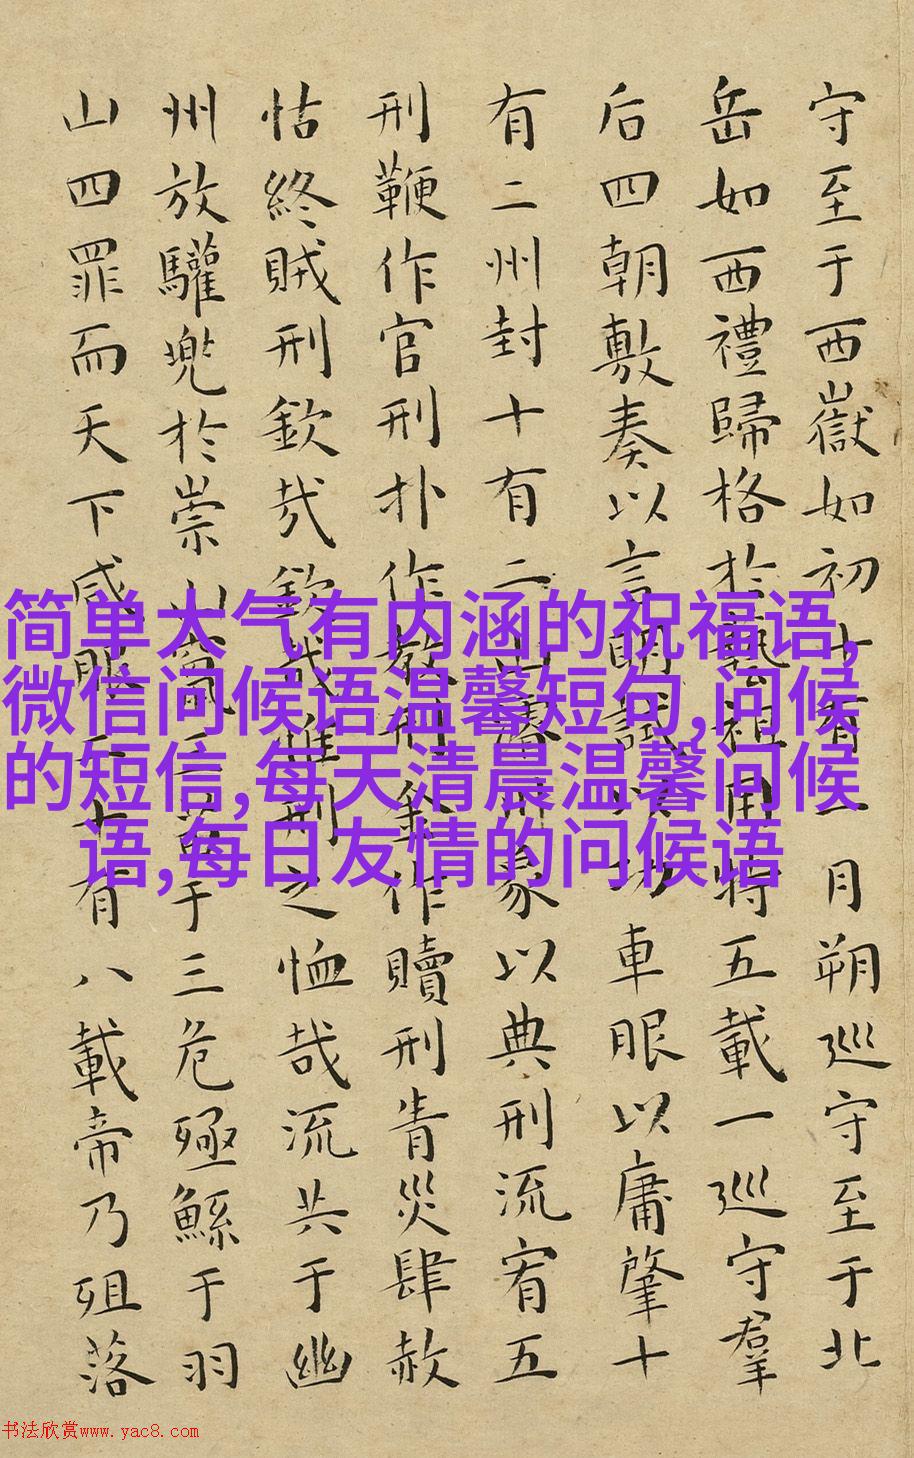 守至于西嶽如初十有一月朔巡守至于北
岳如西禮歸格於藝祖用特五載一巡守羣
后四朝敷奏以言明試以功車服以庸肇十
有二州封十有二山濬川象以典刑流宥五
刑鞭作官刑扑作教刑金作贖刑眚災肆赦
怙終賊刑欽哉欽哉惟刑之恤哉流共于幽
州放驩兜於崇山竄三苗于三危殛鯀于羽
山四罪而天下咸服二十有八載帝乃殂落
简单大气有内涵的祝福语,
微信问候语温馨短句,问候
的短信,每天清晨温馨问候
语,每日友情的问候语
书法欣赏www.yac8.com